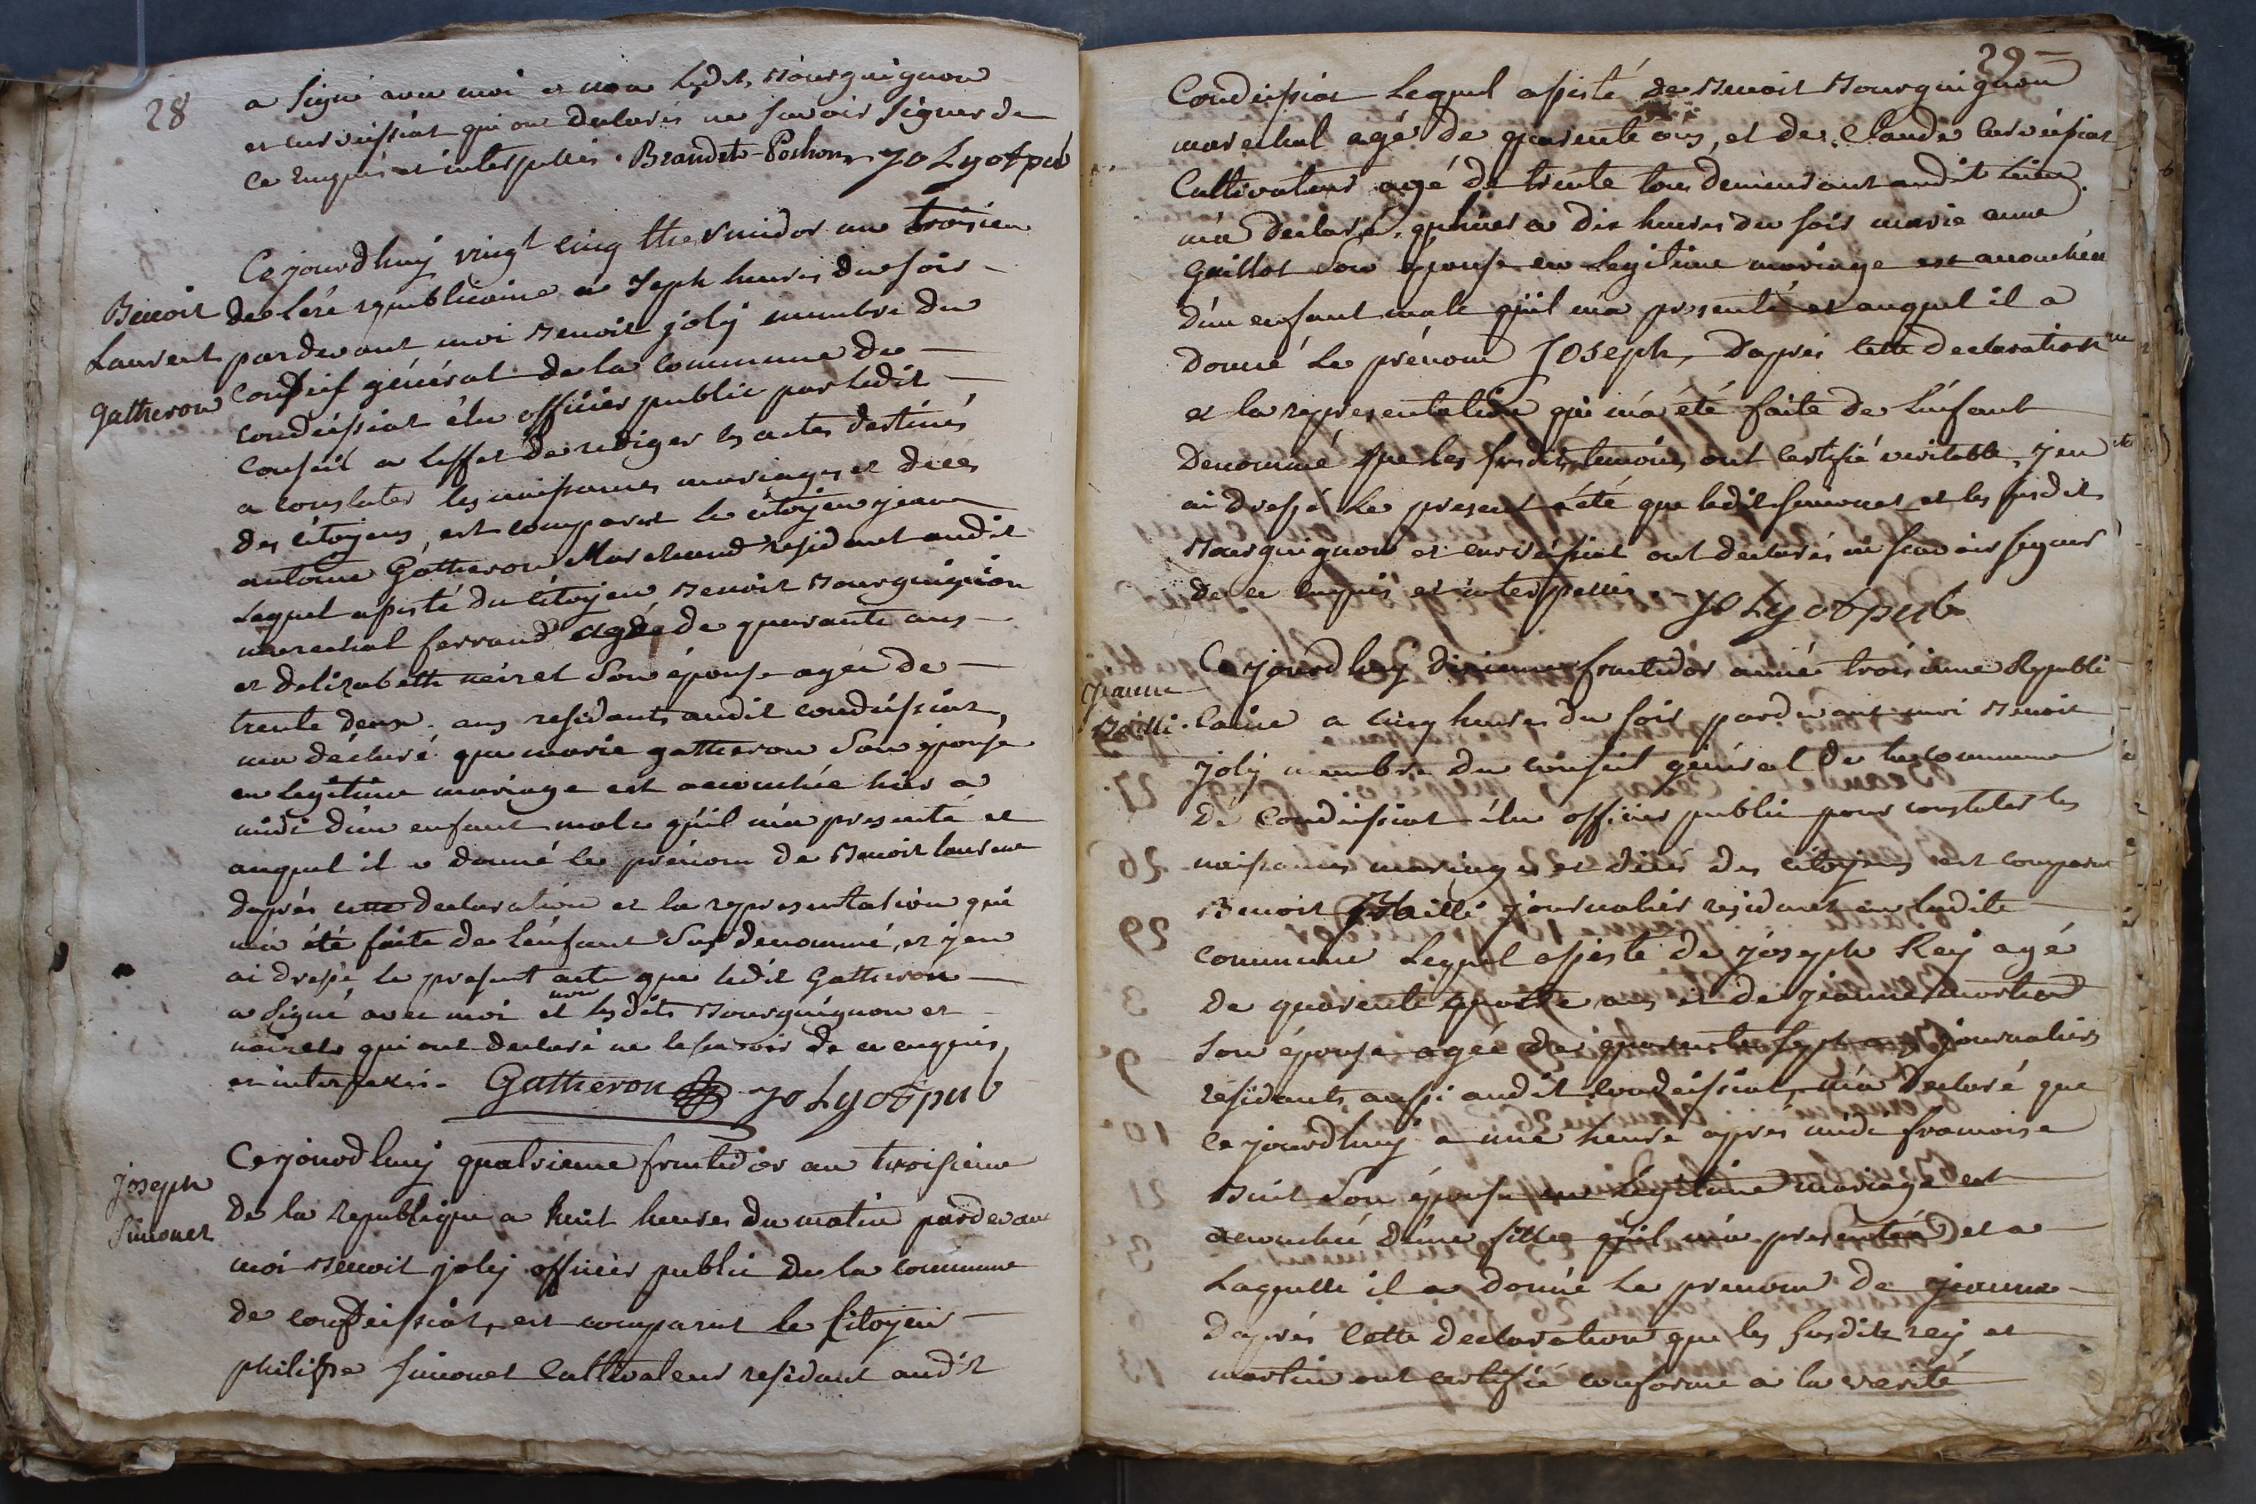 28
a signé avec moi et non ledit Bourguignon
et curveissiat qui ont declarés ne savoir signer de
ce enquis et interpellés. Brandet Pochon, JoLy of pub
Cejourdhuy vingt cinq thermidor an troisieme
Benoit
Laurent
Gatheron
de l'ére republicaine a Seph heures du soir
pardevant moi Benoit joly membre du
conseil général de la commune de
condeissiat élu officier public par ledit
conseil a leffet de rediger les actes destinés
a constater les naissances mariages et décés
des citoyens, est comparut le citoyen jean
antoine Gatheron Marchand residant audit
Lequel assisté du citoyen Benoit Bourguignon
marechal ferrand agée de quarante ans
et delizabeth noiret son épouse agée de
trente deux ans residants audit condeissiat,
ma déclaré que marie gatheron son épouse
en legitime mariage est acouchée hier a
midi d'un enfant male qu'il m'a presenté et
auquel il a donné le prénom de Benoit laurent
daprés cette declaration et la representation qui
m'a été faite de l'enfant sus denommé, et jen
ai dressé le present acte que ledit Gatheron
a signé avec moi et non lesdits Bourguignon et
noiret qui ont declaré ne le savoir de ce enquis
et interpellés. Gatheron JoLy of pub
Joseph
Simonet
Cejourdhuy quatrieme fructidor an troisieme
de la republique a huit heures du matin pardevant
moi Benoit joly officier public de la commune
de condeissiat, est comparut le Citoyen
philippe simonet Cultivateur residant audit
29
Condeissiat Lequel assisté de Benoit Bourguignon
marechal agé de quarente ans, et de Claude curveissiat
Cultivateur agé de trente tous demeurant audit Lieu
m'a declaré qu'hier a dix heures du soir marie anne
Guillot son épouse en Legitime mariage est acouchée
d'un enfant male qu'il m'a presenté et auquel il a
donné Le prénom JOSeph, daprés cette declaration
et la representation qui m'a été faite de l'enfant
denommé que les susdits temoins ont certifié veritable, jen
ai dressé Le present acte que ledit simonet et les susdits
Bourguignon et curveissiat ont declarés ne scavoir signer
de ce enquis et interpellés JoLy of pub
Jeanne
Bailli.
Cejourdhuy dixieme fructidor année troisieme Republi
caine a cinq heures du soir pardevant moi Benoit
joly membre du conseil général de la commune
de Condeissiat élu officier public pour constater les
naissances mariages et décés des citoyens est comparu
Benoit Bailli journalier residant en ladite
commune Lequel assisté de joseph Rey agé
de quarente quatre ans et de jeanne martin
son épouse agée de quarente sept ans journaliers
residants aussi audit condeissiat, m'a declaré que
Cejourdhuy a une heure aprés midi francoise
son épouse en Legitime mariage est
acouchée d'une fille qu'il m'a presentée et a
Laquelle il a donné Le prenom de jeanne
daprés Cette declaration que les susdits rey et
martin ont certifié conforme a la verité